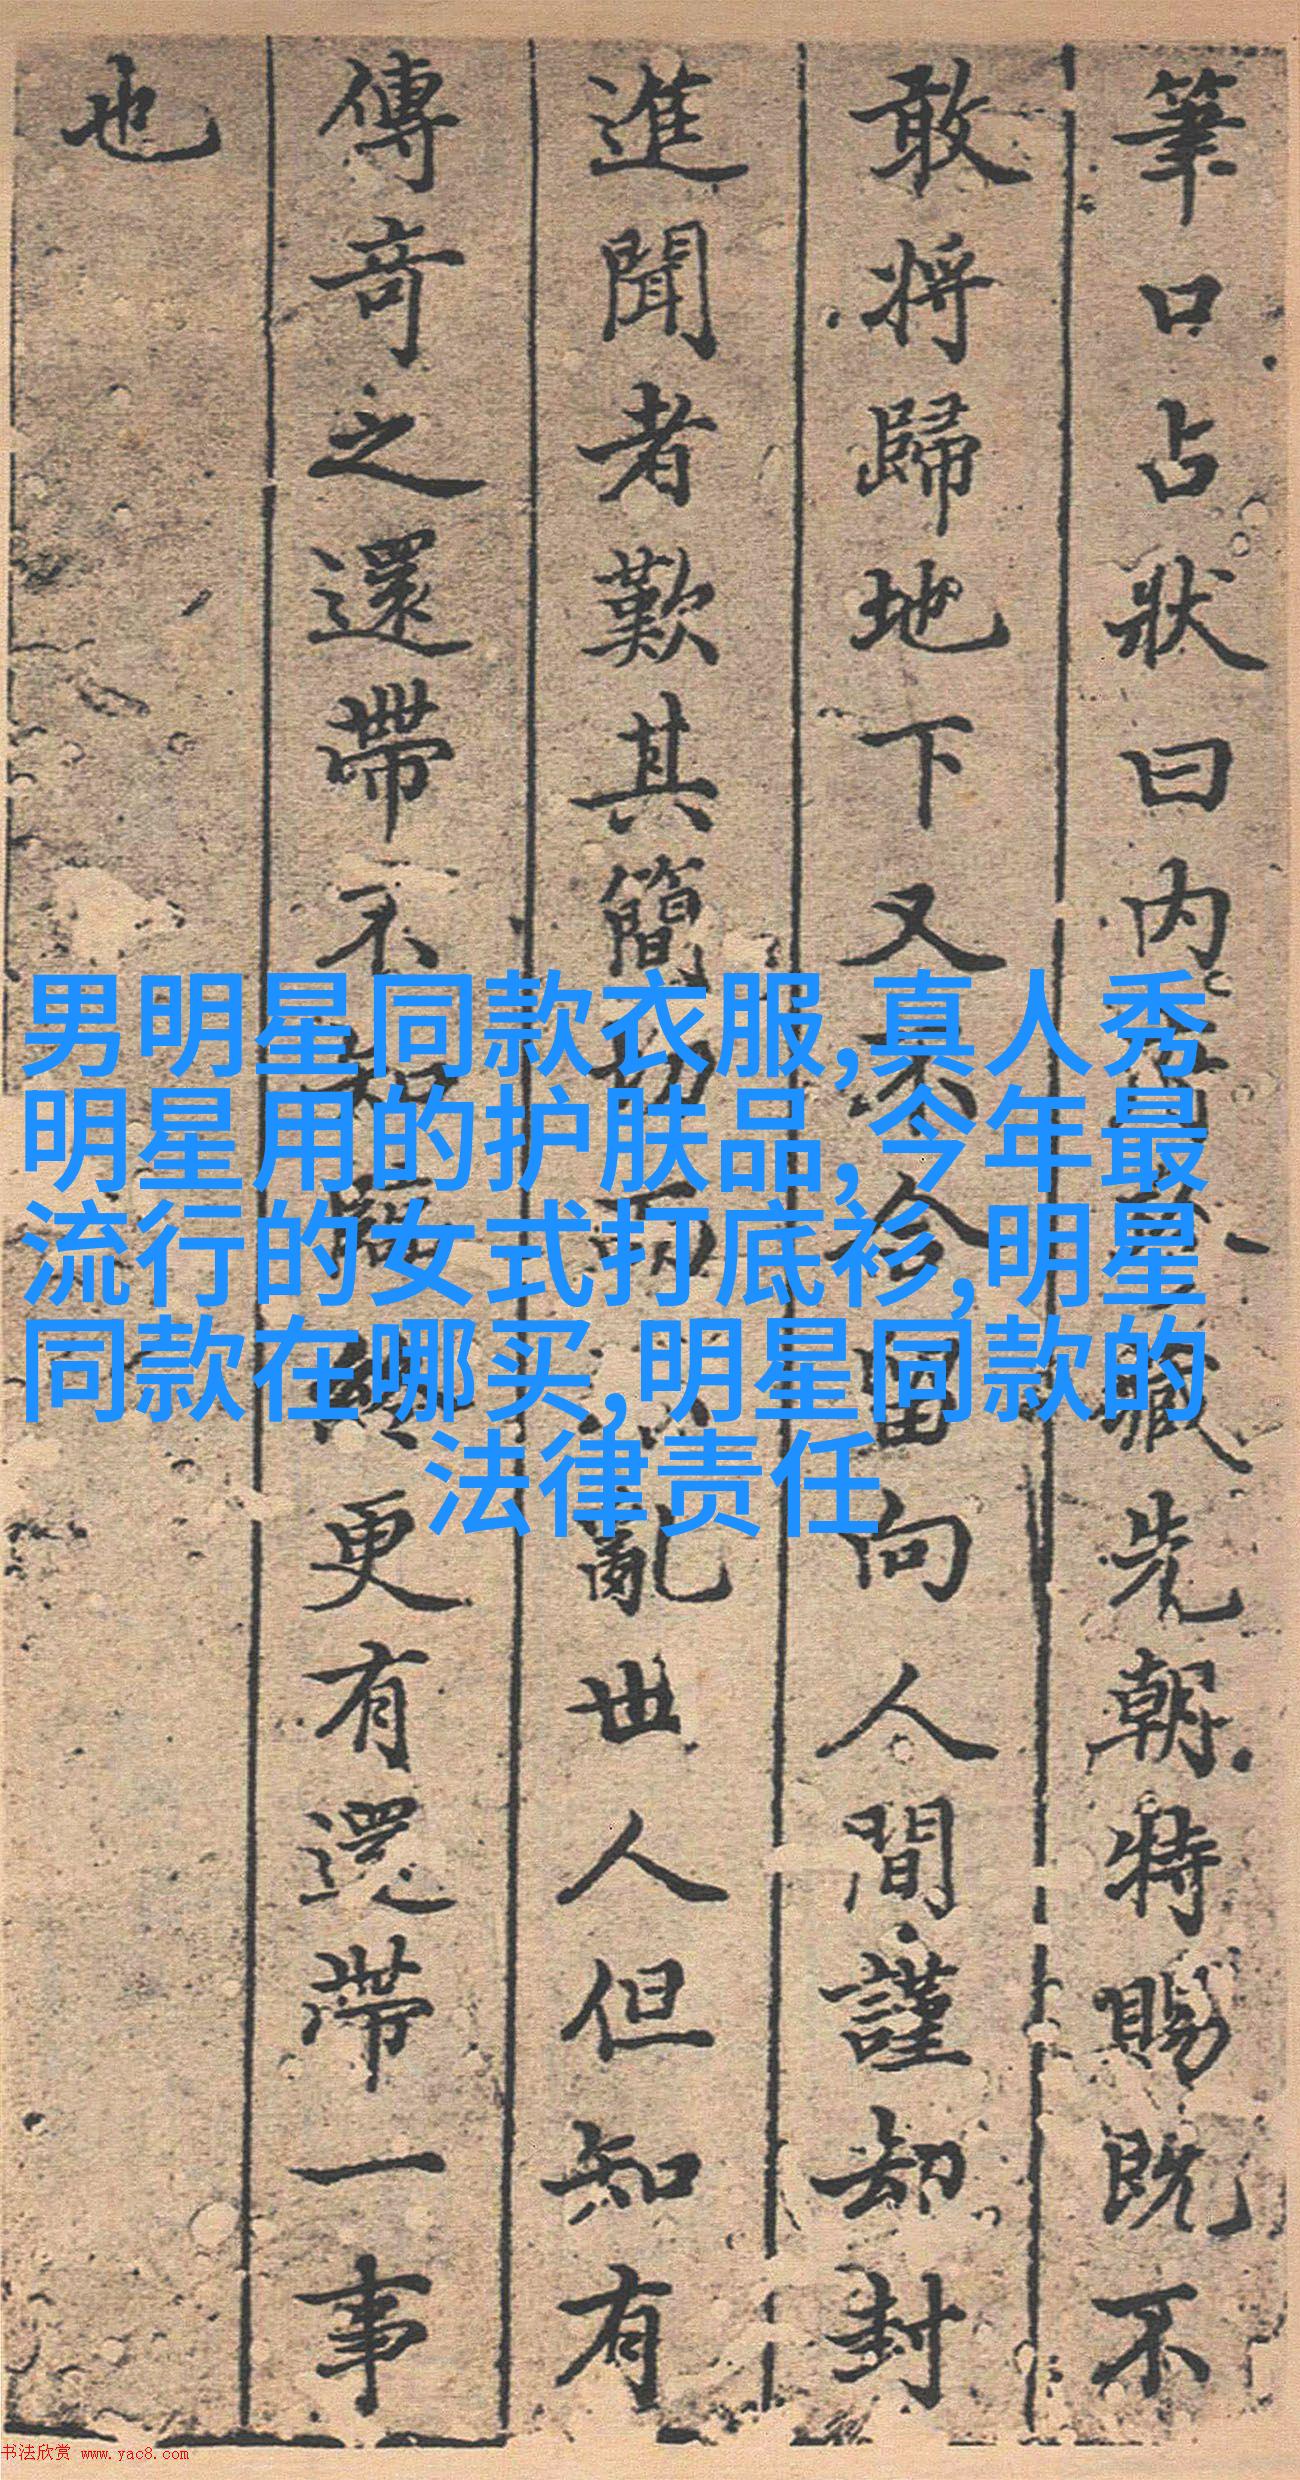 筆口占狀曰内
先朝特賜既不
敢將歸地下又不令留向人間謹却封
進聞者歎其簡切而
亂世人但知有
傳奇之還帶不知
更有還帶一事
也
男明星同款衣服,真人秀
明星用的护肤品,今年最
流行的女式打底衫,明星
同款在哪买,明星同款的
法律责任
书法欣赏 www.yac8.com